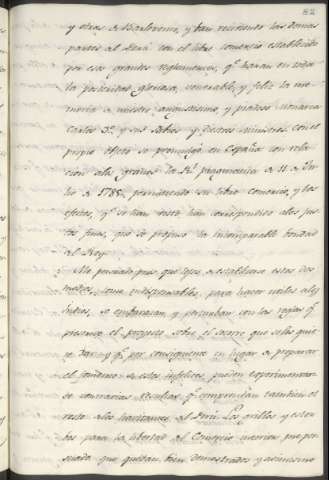 82
y otras de Barlovento, y han recivido las demas
partes del Perú con el libre comercio establecido
por esos grandes reglamentos, qᵉ harán en toda
la posteridad gloriosa, venerable, y feliz la me-
moria de nuestro augustisimo, y piadoso monarca
Carlos 3º y sus sabios y diestros ministros. Con el
propio efecto se promulgó en España con rela-
cion a los granos la Rˡ pragmatica de 11 de Ju-
lio de 1765, permitiendo su libre comercio, y los
efectos, qᵉ se han visto han correspondido a los jus-
tos fines, que se propuso la incomparable bondad
del Rey.
No parecia pues que lejos de establecerse estos dos
medios, como indispensables, para hacer utiles a los
Indios, se embarazan y perturban con las reglas qᵉ
presenta el proyecto sobre el socorro que se les quie-
re dar y qᵉ por consiguiente en lugar de preparar
el fomento de estos infelices, pueden experimentar-
se contrarias resultas, qᵉ comprendan tambien el
resto de los havitantes del Perú. Los grillos y estor-
bos para la libertad del Comercio interior que per-
suado que quedan bien demostrados y asimismo